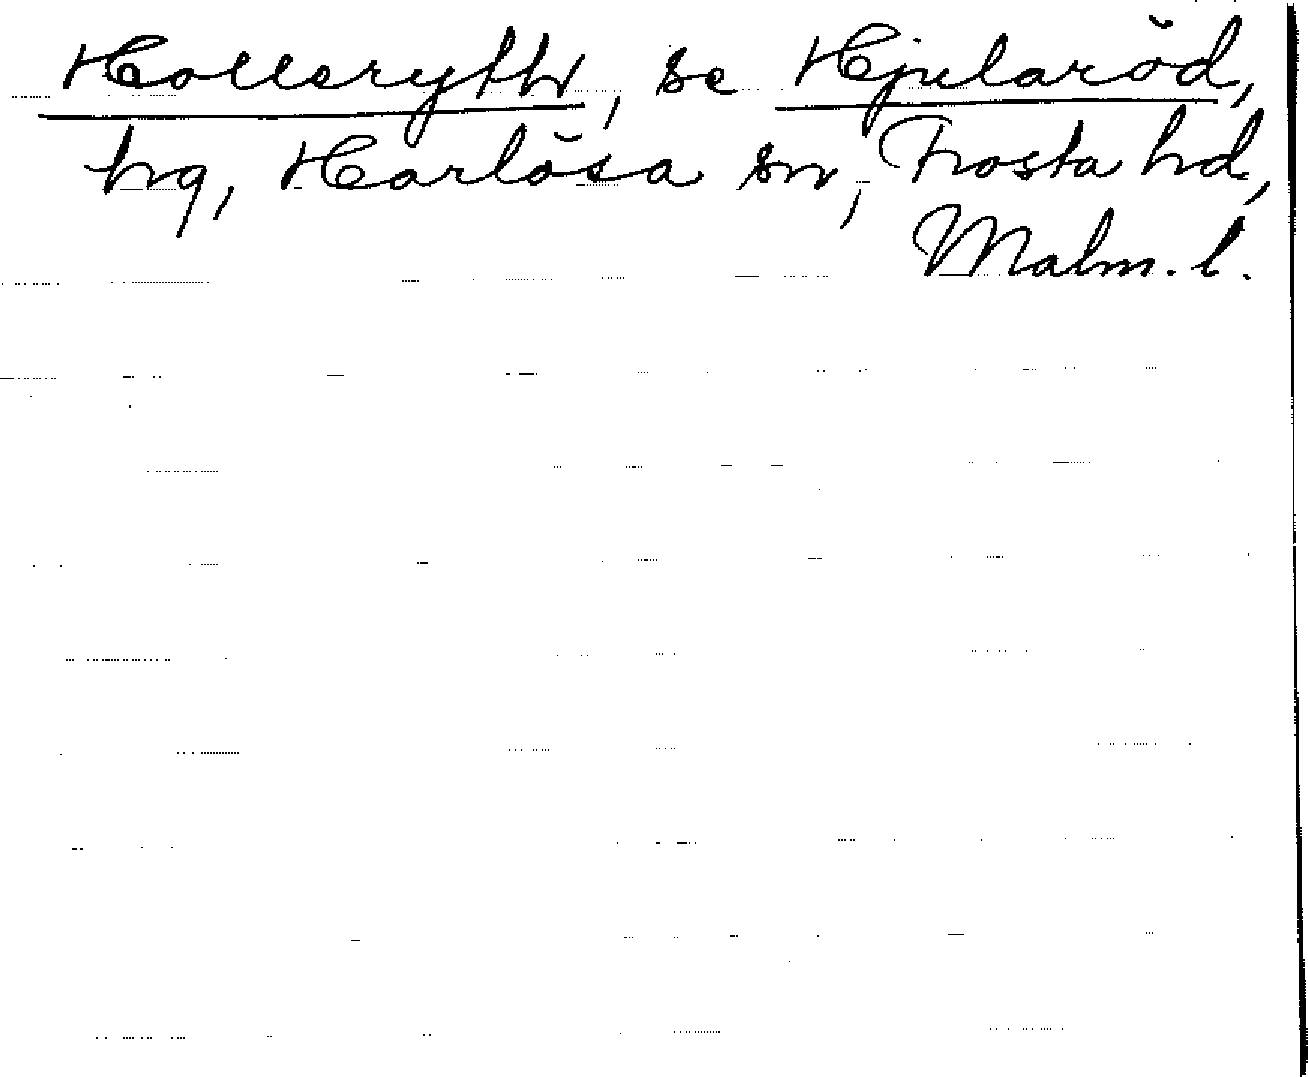 Hollerythz, se Hjularöd,
hg, Harlösa sn, Frosta hd,
Malm. l.